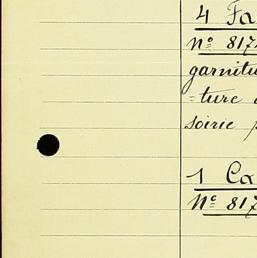 4 Fa
Nº 817
garnitu
=ture
soirie p
1 Ca
Nº 817